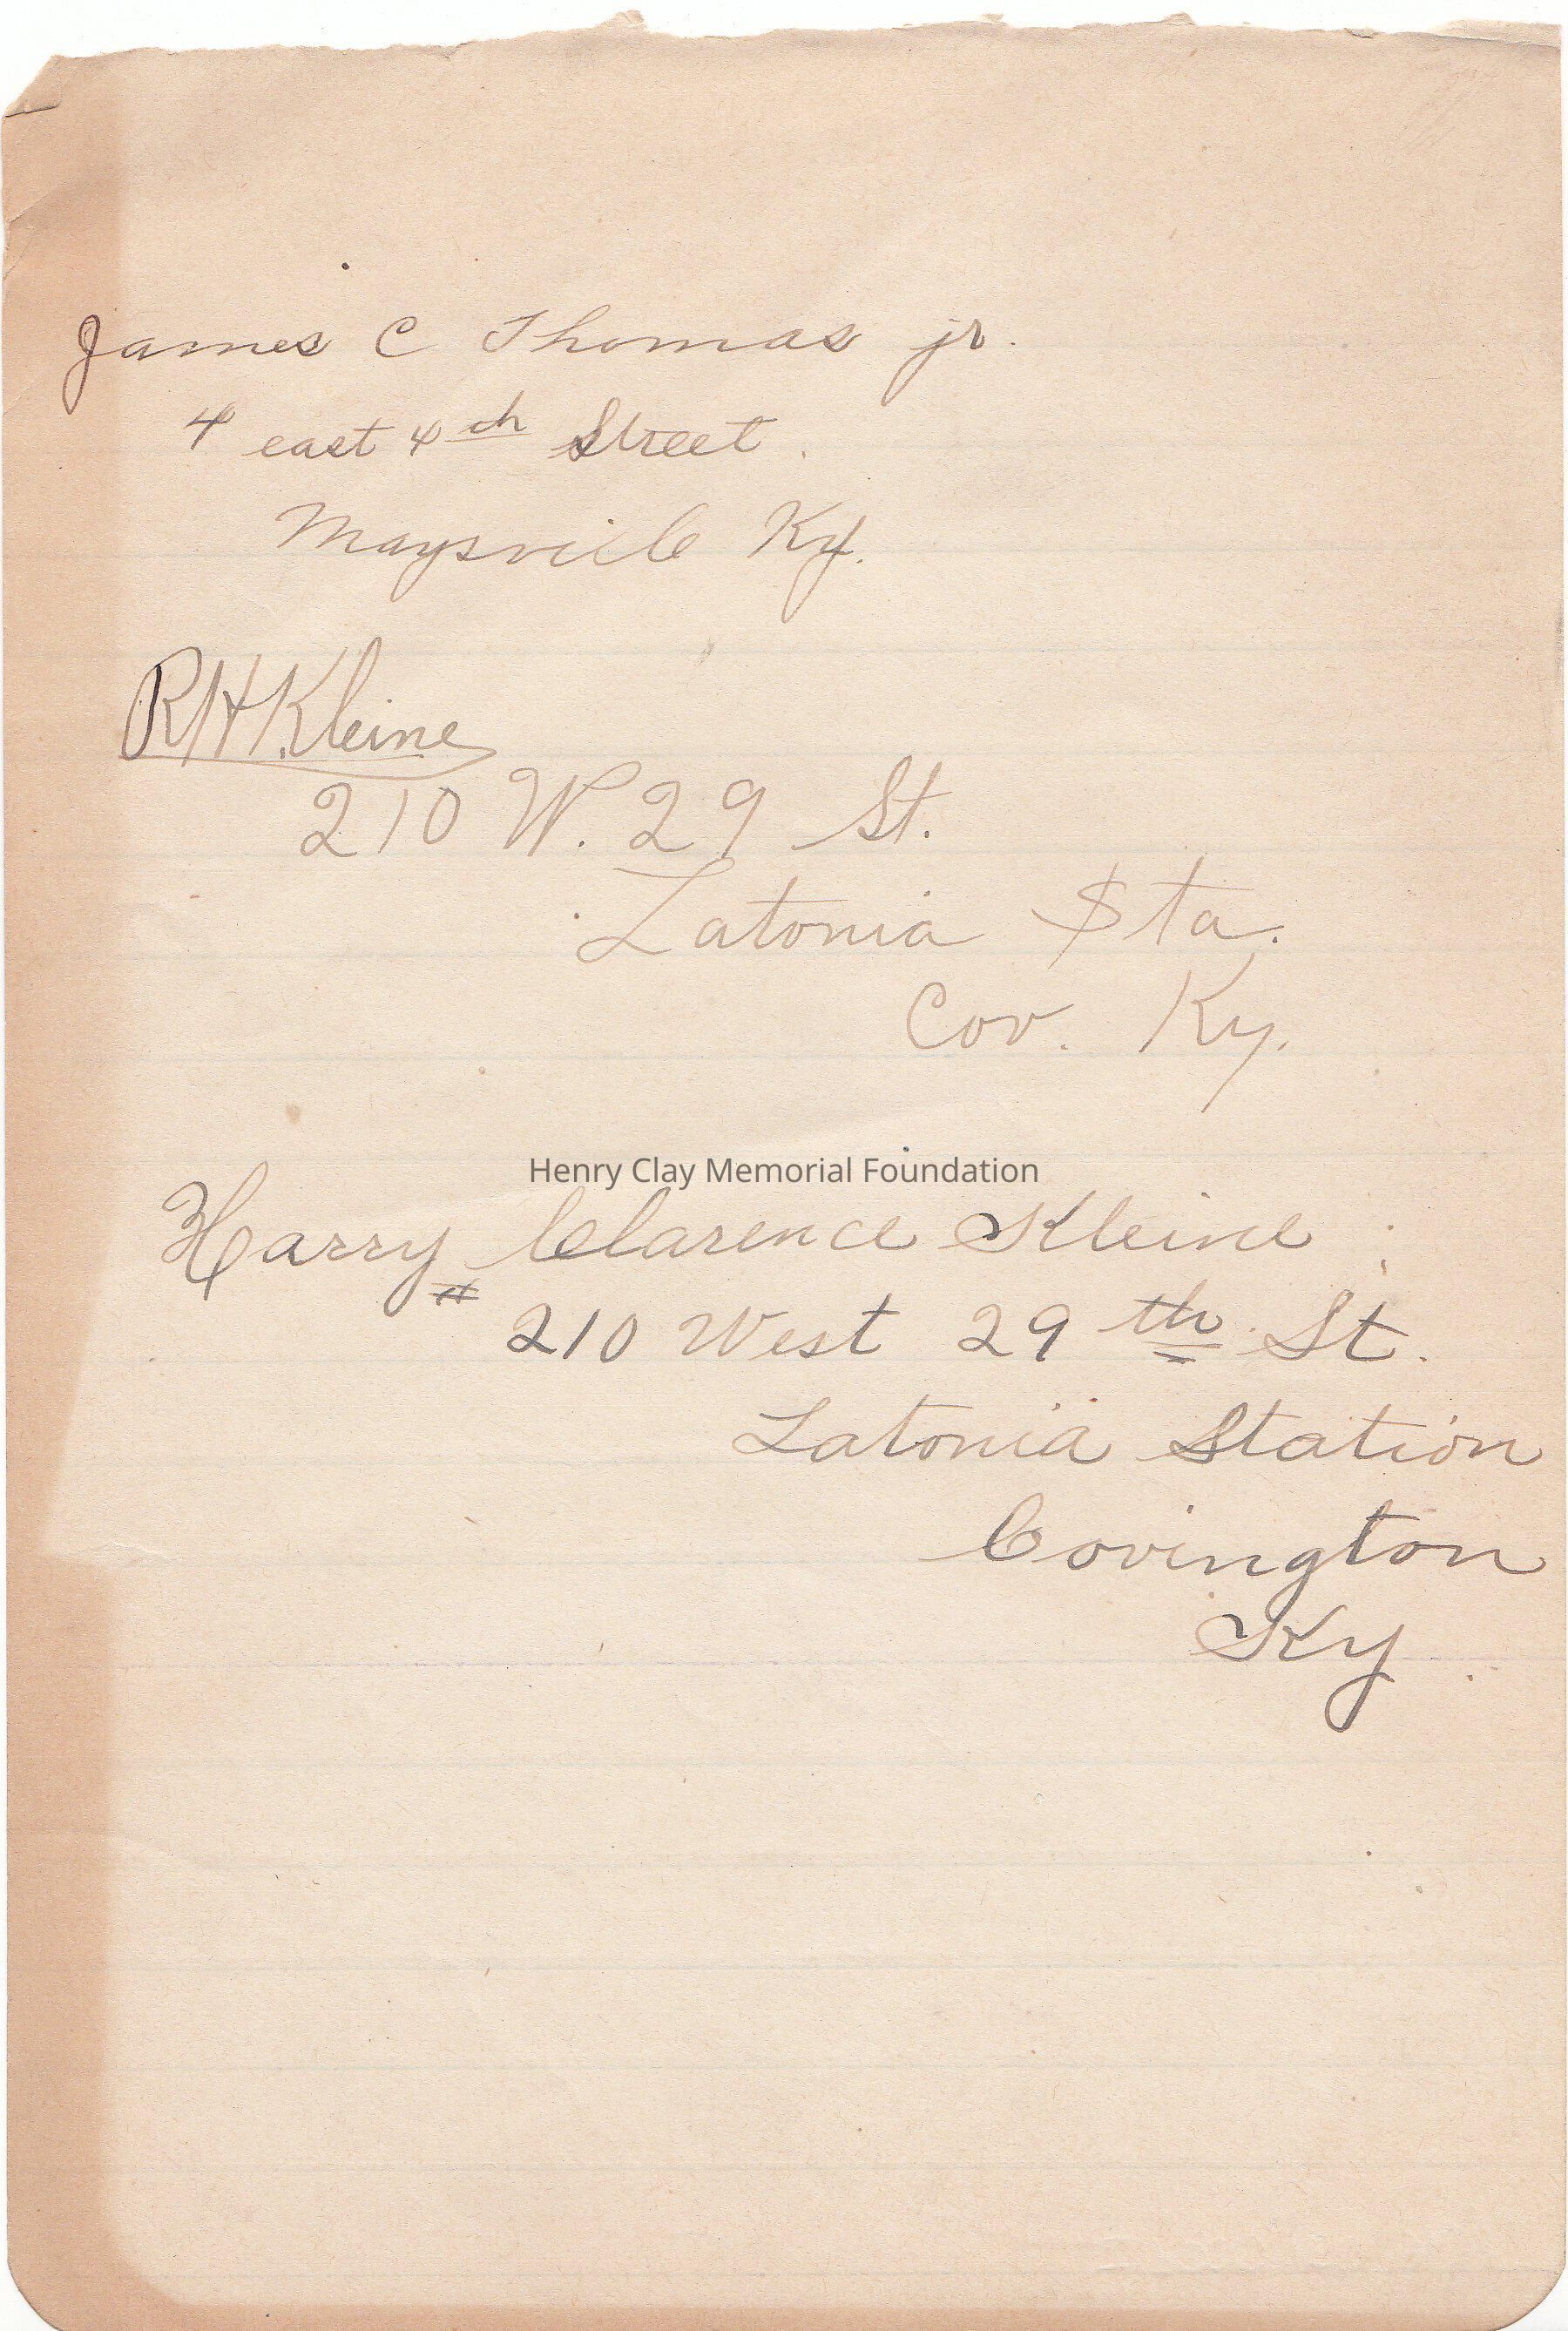 James C Thomas jr.
4 east 4th Street.
Maysville Ky.
RHKleine
210 W. 29 St.
Latonia Sta.
Cov. Ky.
Henry Clay Memorial Foundation
Harry Clarence Kleine
210 West 29th St.
Latonia Station
Covington
Ky